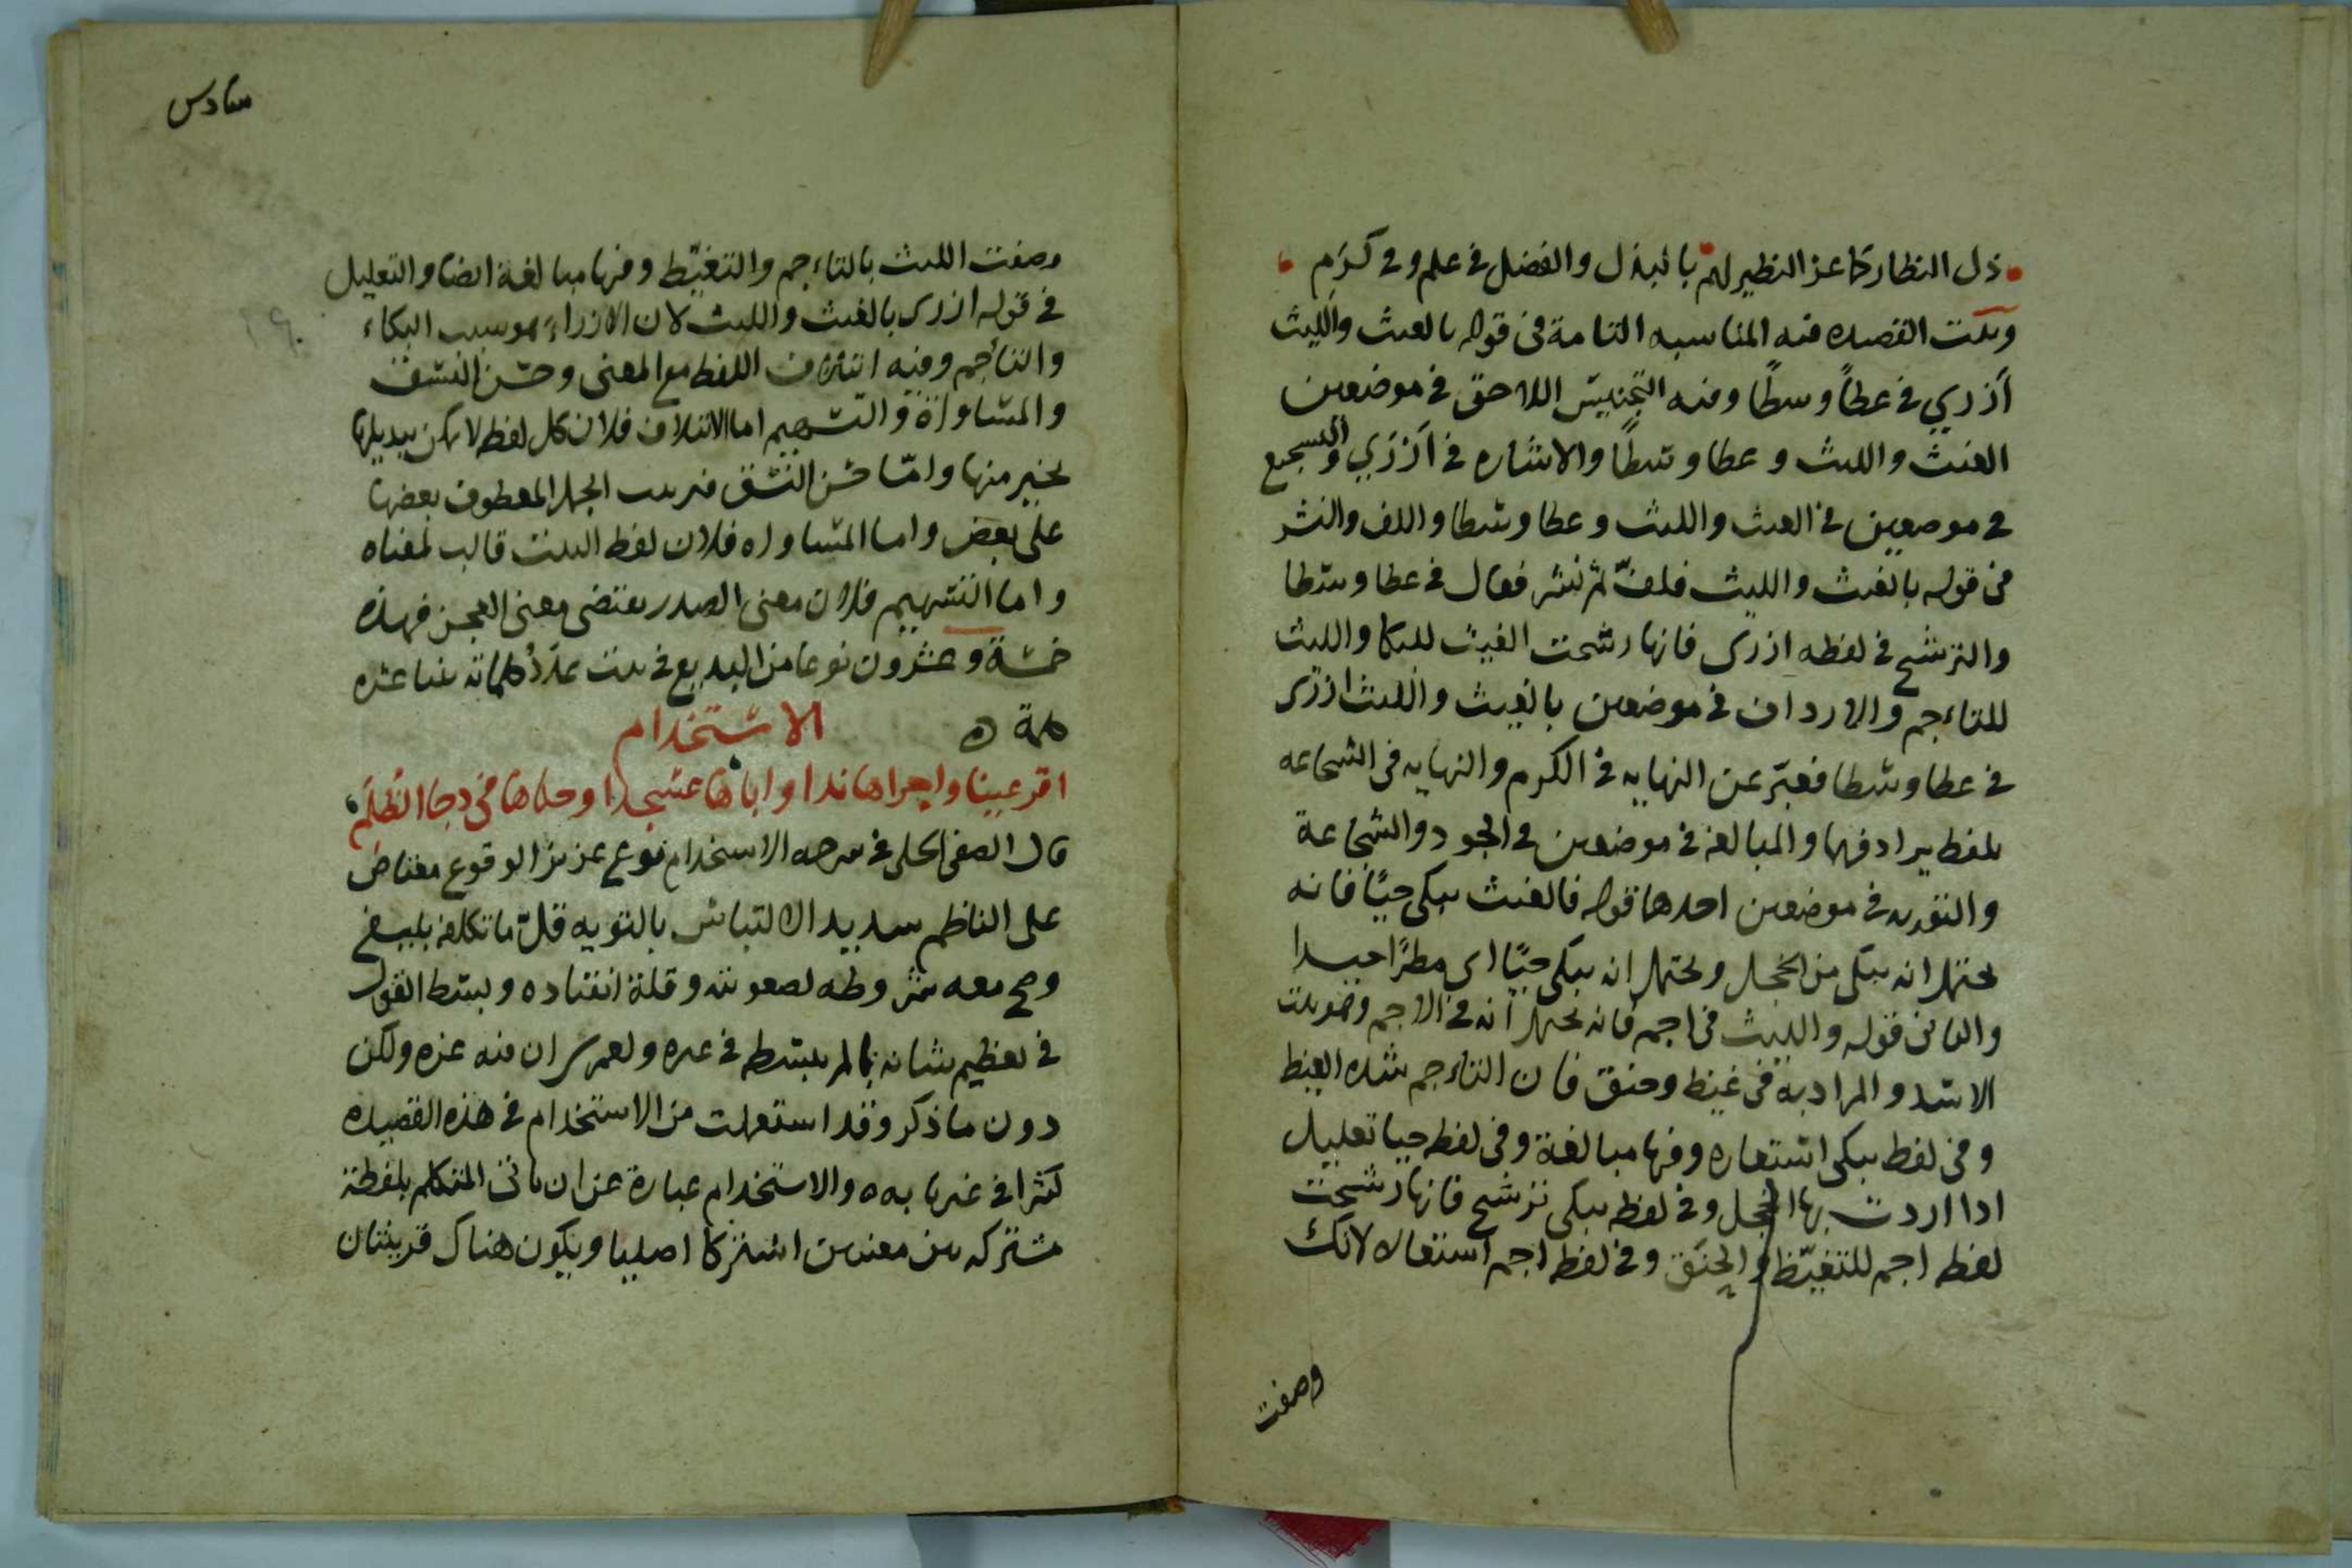 زل النظار كما عز النظير لهم بالبذل والفضل في علم وفي كرم
وبيت القصيده فيه المناسبه التامة في قوله بالغيث والليث
أزري في عطاً وسطًا وفيه التجنيس اللاحق في موضعين
الغيث والليث وعطا وسطًا والاشاره في أزري والتسجيع
في موضعين في الغيث والليث وعطا وسطا واللف والنشر
في قوله بالغيث والليث فلفّ ثم نشر فقال في عطا وسطا
والترشيح في لفظه ازرى فانها رشحت الغيث للبكا والليث
للتاءجم والارداف في موضعين بالغيث والليث ازرى
في عطا وسطا فعبّر عن النهايه في الكرم والنهايه في الشجاعه
بلفظ يرادفهما والمبالغه في موضعين في الجود والشجاعة
والتوريه في موضعين احدهما قوله فالغيث يبكي حيًا فانه
يحتمل انه يبكى من الخجل ويحتمل انه يبكى حيًا اى مطرًا جيدا
والثانى قوله والليث في اجم فانه يحتمل انه في الاجم وهو بيت
الاسد والمراد به في غيظ وحنق فان التاءجم شده الغيظ
وفي لفظ يبكى استعاره وفيها مبالغة وفي لفظه حيا تعليل
اذا اردت بها الخجل وفي لفظه يبكى ترشيح فانها رشحت
لفظه اجم للتغيّظ والحنَق وفي لفظ اجم استعاره لانك
وصفت
سادس
وصفت الليث بالتاءجم والتغيّظ وفيها مبالغة ايضا والتعليل
في قوله ازرى بالغيث والليث لان الازراء هو سبب البكاء
والتأجم وفيه ائتلاف اللفظ مع المعنى وحسن النسق
والمساواة والتسهيم اما الائتلاف فلان كل لفظه لا يمكن تبديلها
بخير منها وامّا حسن النسق فترتيب الجمل المعطوف بعضها
على بعض واما المساواه فلان لفظ البيت قالب لمعناه
واما التسهيم فلان معنى الصدر يقتضى معنى العجز فهذه
خمسة وعشرون نوعا من البديع في بيت عدَدُ كلماته اثنا عشره
كلمة ه الاستخدام
اقر عينا واجراها ندا واباها عسجدا وحلاها في دجا الظلم
قال الصفي الحلي في شرحه الاستخدام نوع عزيز الوقوع معتاض
على الناظم شديد الالتباس بالتوريه قلّ ما تكلفه بليغ
وصح معه شروطه لصعوبته وقلة انقياده وبسط القول
في تعظيم شانه بما لم يبسطه في غيره ولعمرى ان فيه عزه ولكن
دون ما ذكر وقد استعملت من الاستخدام في هذه القصيده
كثيرا في غير بابه ه والاستخدام عبارة عن ان ياتى المتكلم بلفظة
مشتركه بين معنيين اشتركا اصليا ويكون هناك قرينتان